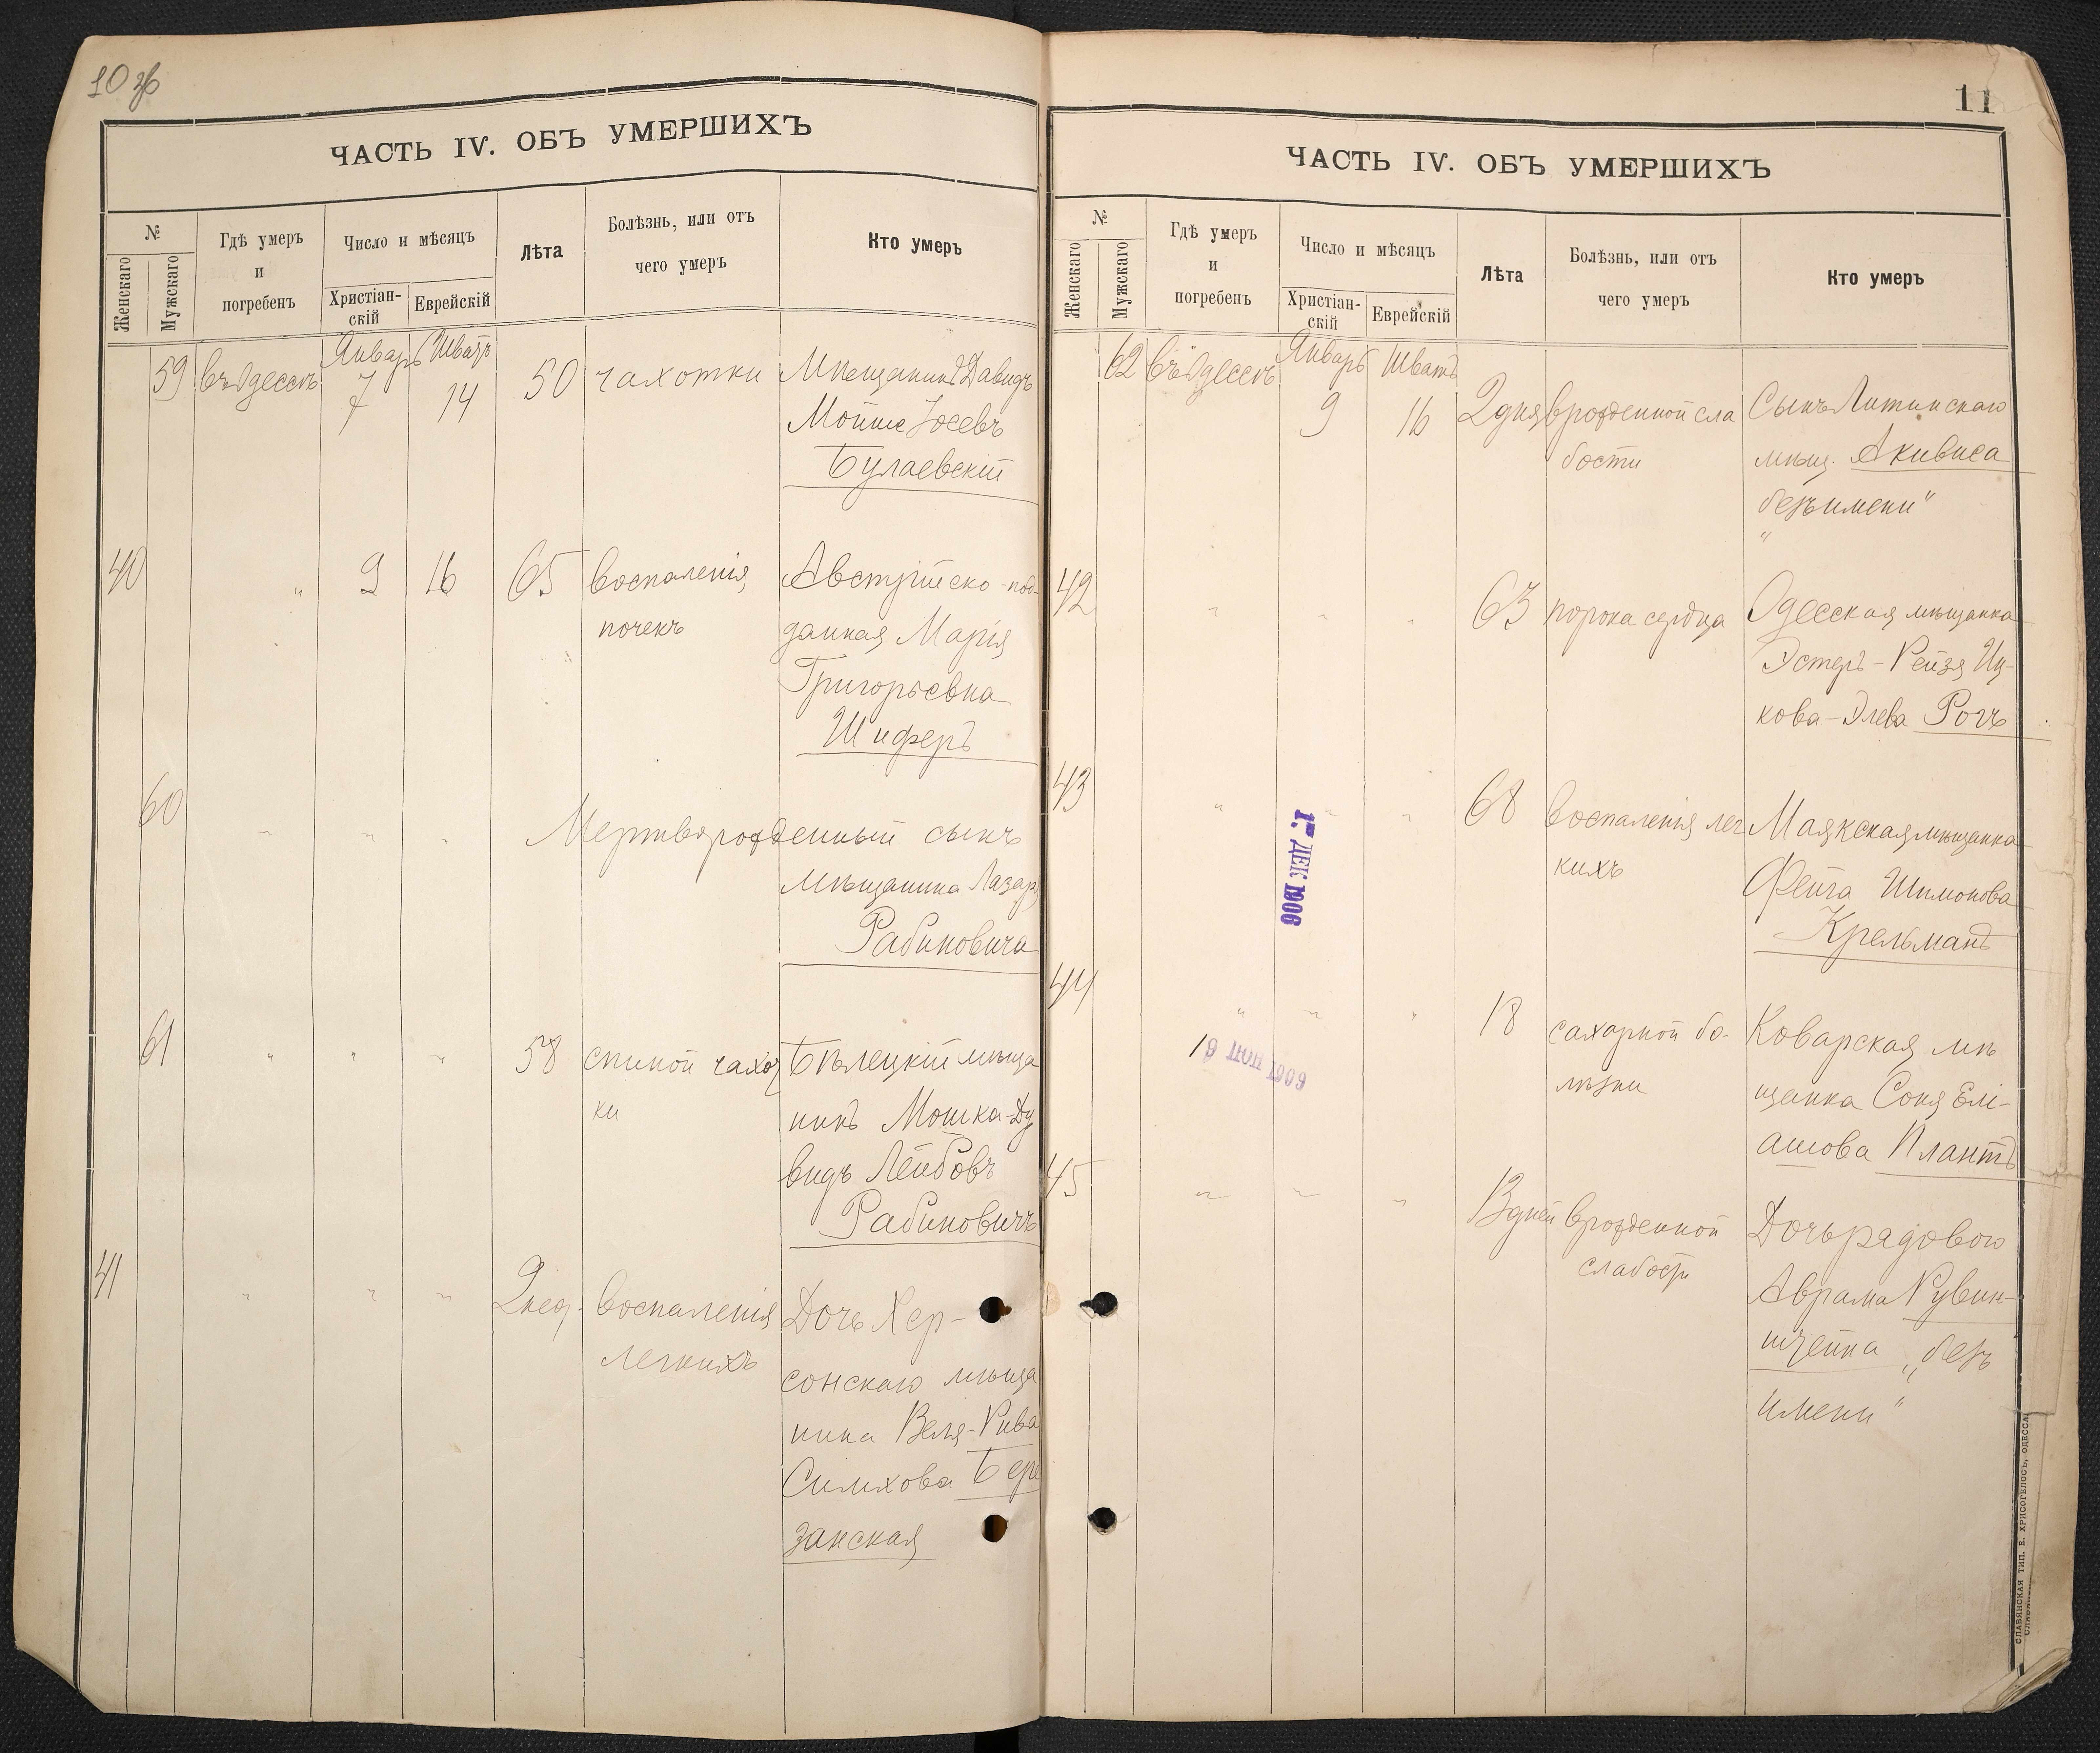 10 зв
ЧАСТЬ IV. ОБЪ УМЕРШИХЪ
№
Женскаго
Мужскаго
Гдѣ умеръ
и
погребенъ
Число и мѣсяцъ
Христіан-
скій
Еврейскій
Лѣта
Болѣзнь, или отъ
чего умеръ
Кто умеръ
59 въ Одессѣ Январь 7 Шватъ 14 50 чахотки Мѣщанинъ Давидъ
Мойше Іосевъ
Булаевскій
40 " 9 16 65 воспаленія Австрійско-под-
почекъ данная Марія
Григорьевна
Шиферъ
60 " " " Мертворожденный сынъ
мѣщанина Лазаря
Рабиновича
61 " " " 58 спиной чахот Бѣлецкій мѣща
ки нинъ Мошка-Ду
видъ Лейбовъ
Рабиновичъ
41 " " " 2 нед. воспаленія Дочь Хер-
легкихъ сонскаго мѣща
нина Веля-Рива
Симхова Бере
занская
11
ЧАСТЬ IV. ОБЪ УМЕРШИХЪ
№
Женскаго
Мужскаго
Гдѣ умеръ
и
погребенъ
Число и мѣсяцъ
Христіан-
скій
Еврейскій
Лѣта
Болѣзнь, или отъ
чего умеръ
Кто умеръ
62 въ Одессѣ Январь 9 Шватъ 16 2 дня врожденной сла Сынъ Литинскаго
бости мѣщ. Акивиса
"безъ имени"
42 " " " 63 порока сердца Одесская мѣщанка
Эстеръ-Рейзя Иц-
кова-Элева Рогъ
43 " " " 68 воспаленія лег Маякская мѣщанка
кихъ Фейга Шимонова
Крельманъ
17 ДЕК 1906
44 " " " 18 сахарной бо- Коварская мѣ
лѣзни щанка Соня Елі-
ашова Плантъ
1909
45 " " " 13 дней врожденной Дочь рядового
слабости Аврама Рувин-
штейна "безъ
имени"
СЛАВЯНСКАЯ ТИП. Е. ХРИСОГЕЛОСЪ, ОДЕССА